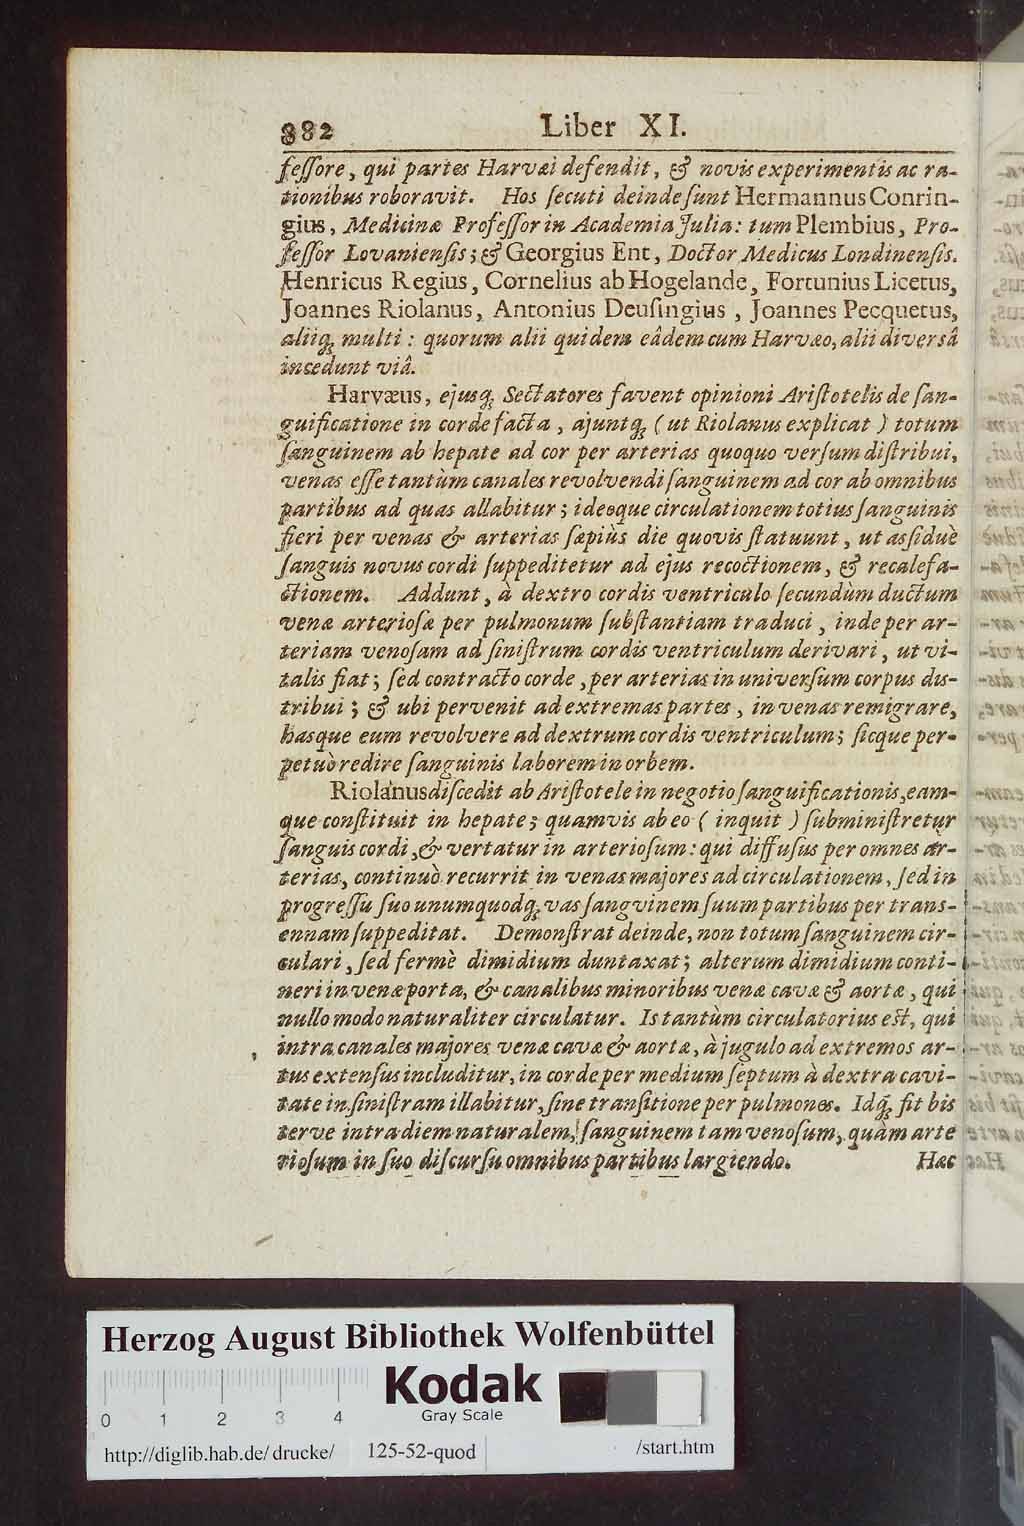 882 Liber XI.
feſſore, qui partes Harvæi defendit, & novis experimentis ac ra-
tionibus roboravit. Hos ſecuti deinde ſunt Hermannus Conrin-
gius, Medicinæ Profeſſor in Academia Julia: tum Plembius, Pro-
feſſor Lovanienſis; & Georgius Ent, Doctor Medicus Londinenſis.
Henricus Regius, Cornelius ab Hogelande, Fortunius Licetus,
Joannes Riolanus, Antonius Deuſingius, Joannes Pecquetus,
aliiq́; multi: quorum alii quidem eâdem cum Harvæo, alii diverſâ
incedunt viâ.
Harvæus, ejusq́; Sectatores favent opinioni Ariſtotelis de ſan-
guificatione in corde facta, ajuntq́; (ut Riolanus explicat) totum
ſanguinem ab hepate ad cor per arterias quoquo verſum diſtribui,
venas eſſe tantùm canales revolvendi ſanguinem ad cor ab omnibus
partibus ad quas allabitur; ideoque circulationem totius ſanguinis
fieri per venas & arterias ſæpiùs die quovis ſtatuunt, ut asſiduè
ſanguis novus cordi ſuppeditetur ad ejus recoctionem, & recalefa-
ctionem. Addunt, à dextro cordis ventriculo ſecundùm ductum
venæ arterioſæ per pulmonum ſubſtantiam traduci, inde per ar-
teriam venoſam ad ſiniſtrum cordis ventriculum derivari, ut vi-
talis fiat; ſed contracto corde, per arterias in univerſum corpus dis-
tribui; & ubi pervenit ad extremas partes, in venas remigrare,
hasque eum revolvere ad dextrum cordis ventriculum; ſicque per-
petuò redire ſanguinis laborem in orbem.
Riolanus diſcedit ab Ariſtotele in negotio ſanguificationis, eam-
que conſtituit in hepate; quamvis ab eo (inquit) ſubminiſtretur
ſanguis cordi, & vertatur in arterioſum: qui diffuſus per omnes ar-
terias, continuò recurrit in venas majores ad circulationem, ſed in
progreſſu ſuo unumquodq́; vas ſangvinem ſuum partibus per trans-
ennam ſuppeditat. Demonſtrat deinde, non totum ſanguinem cir-
culari, ſed fermè dimidium duntaxat; alterum dimidium conti-
neri in venæ porta, & canalibus minoribus venæ cavæ & aortæ, qui
nullo modo naturaliter circulatur. Is tantùm circulatorius eſt, qui
intra canales majores venæ cavæ & aortæ, à jugulo ad extremos ar-
tus extenſus includitur, in corde per medium ſeptum à dextra cavi-
tate in ſiniſtram illabitur, ſine tranſitione per pulmones. Idq́; fit bis
terve intra diem naturalem, ſanguinem tam venoſum, quàm arte
rioſum in ſuo diſcurſu omnibus partibus largiendo. Hæc
Herzog August Bibliothek Wolfenbüttel
Kodak
Gray Scale
0 1 2 3 4
http://diglib.hab.de/drucke/ 125-52-quod /start.htm